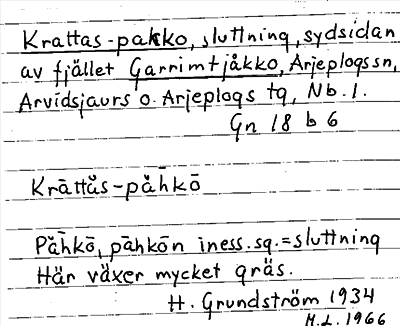 Krattas-pakko, sluttning, sydsidan
av fjället Garrimtjåkko, Arjeplogs sn,
Arvidsjaurs o. Arjeplogs tg, Nb. l.
Gn 18 b 6
Krāttǎs-påhkō
Påhkō, påhkōn iness. sg. = sluttning
Här växer mycket gräs.
H. Grundström 1934
M.L. 1966